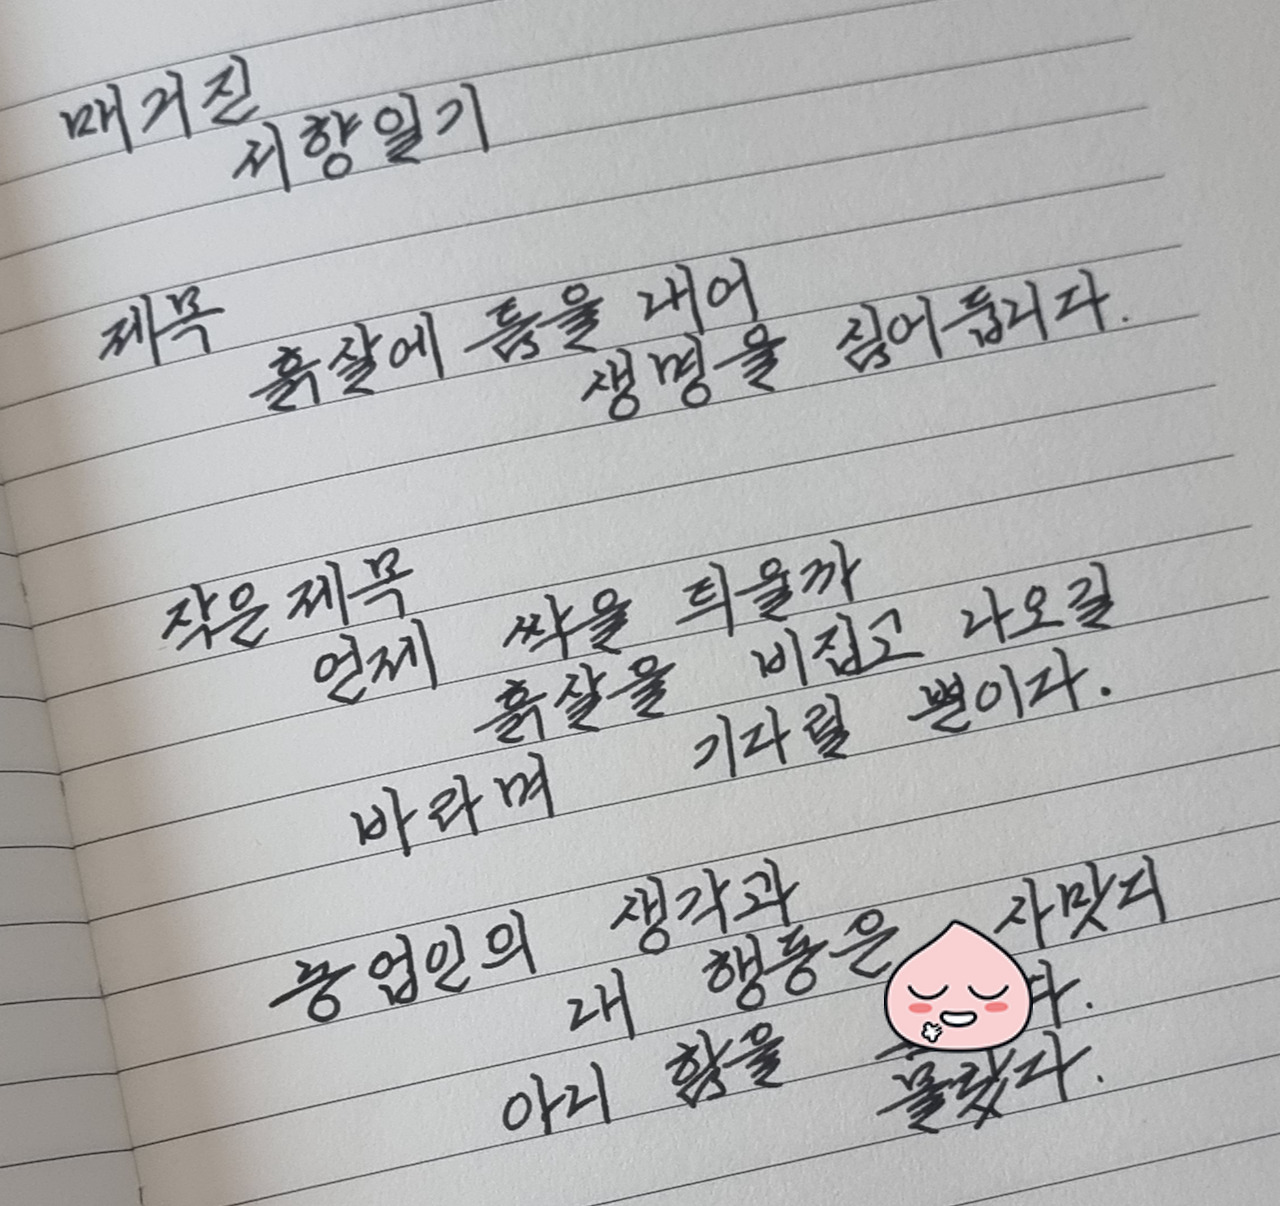 매거진
지향일기
제목
흙살에 틈을 내어
생명을 심어둡니다.
작은 제목
언제 싹을 틔울까
흙살을 비집고 나오길
바라며 기다릴 뿐이다.
농업인의 생각과
내 행동은 사맛디
다.
아니 함을 몰랐다.